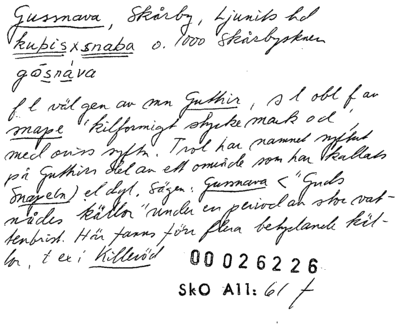 Gussnava, Skårby, Ljunits hd
kuþis x snaba o. 1000 Skårbystenen
gósnáva
f l väl gen av mn Guthir, s l obl f av
snape 'kilformigt stycke mark o d',
med oviss syftn. Trol har namnet syftat
på Guthirs del av ett område som har kallats
Snapeln) el dyl. Sägen: Gussnava < "Guds
nådes källor" under en period av stor vat-
tenbrist. Här fanns förr flera betydande käl-
lor, t ex i Killeröd
00026226
SkO All: 61 f